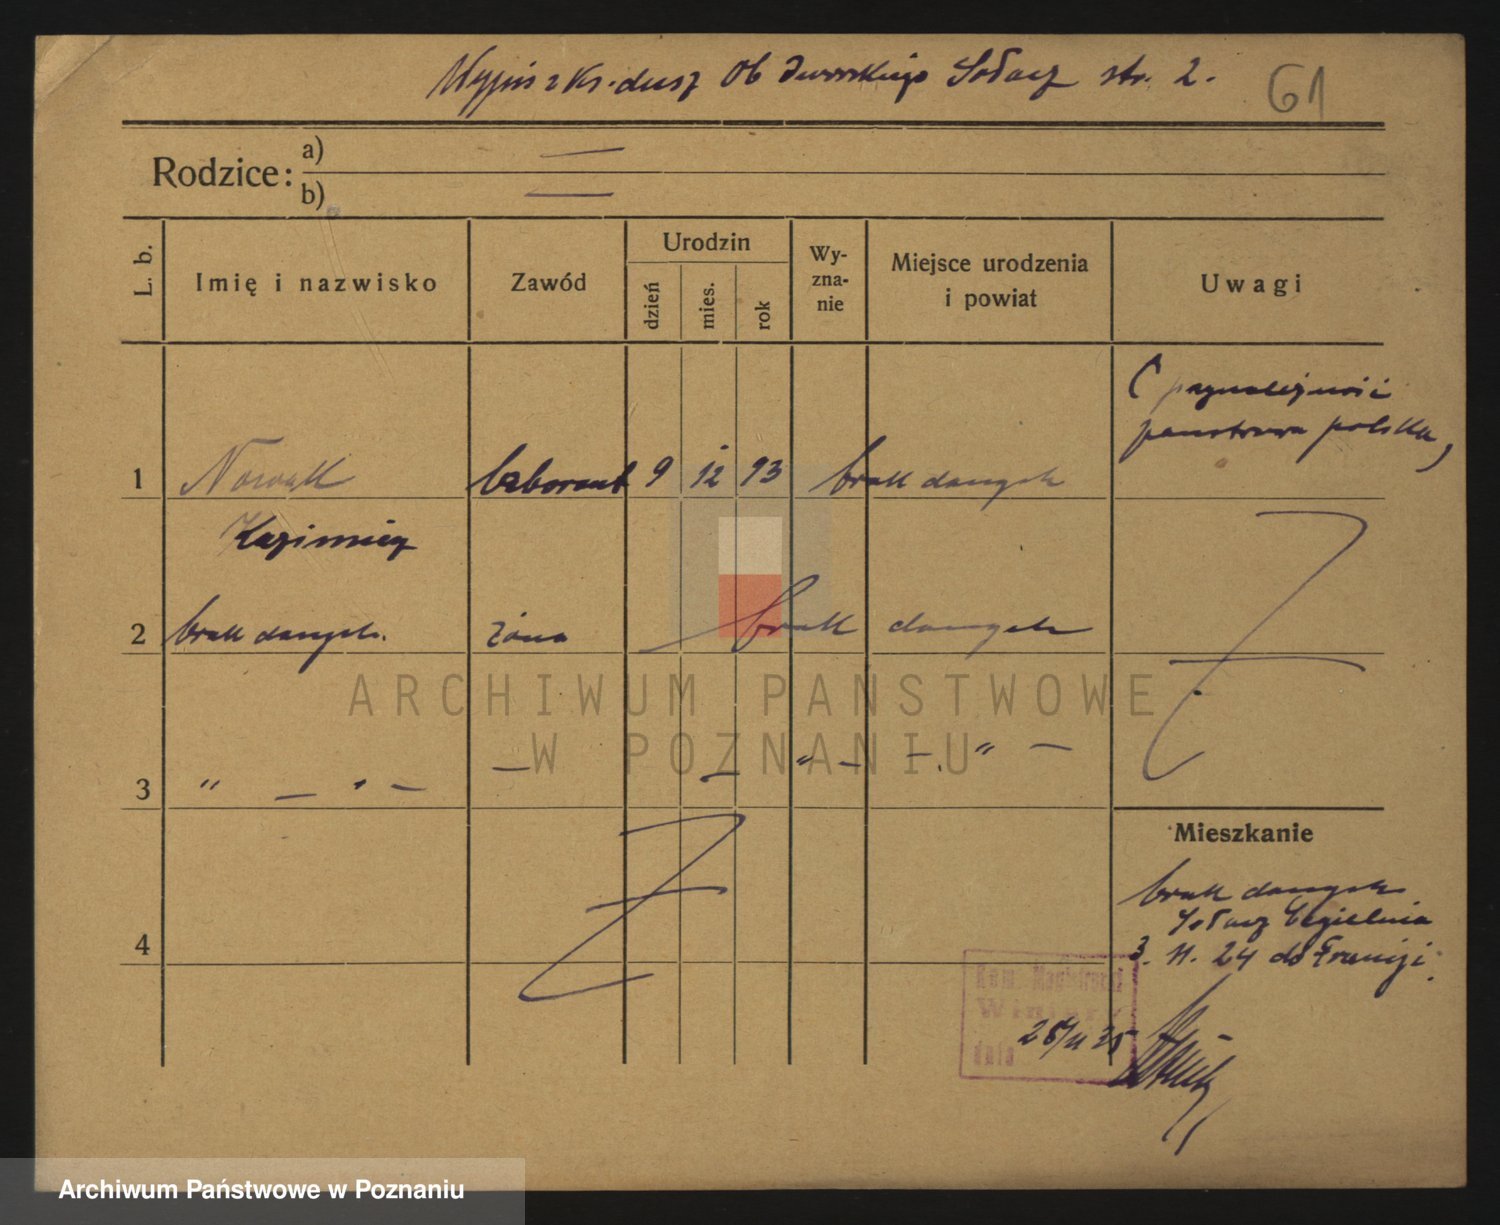 Wypis z ks. dusz Ob Dworskiego Sołacz str. 2.
61
Rodzice: a) —
b) —
L. b.
Imię i nazwisko
Zawód
Urodzin
dzień
mies.
rok
Wy-
zna-
nie
Miejsce urodzenia
i powiat
Uwagi
( przynależność
państwowa polska,
1 Nowak laborant 9 12 93 brak danych
Kazimierz
2 brak danych. żona brak danych
3 " — " — — — " — " —
4
Mieszkanie
brak danych
Sołacz Cegielnia
3. 11. 24 do Francji.
Kom. Magistracki
Winiary
dnia 25/11 35
ARCHIWUM PAŃSTWOWE
W POZNANIU
Archiwum Państwowe w Poznaniu